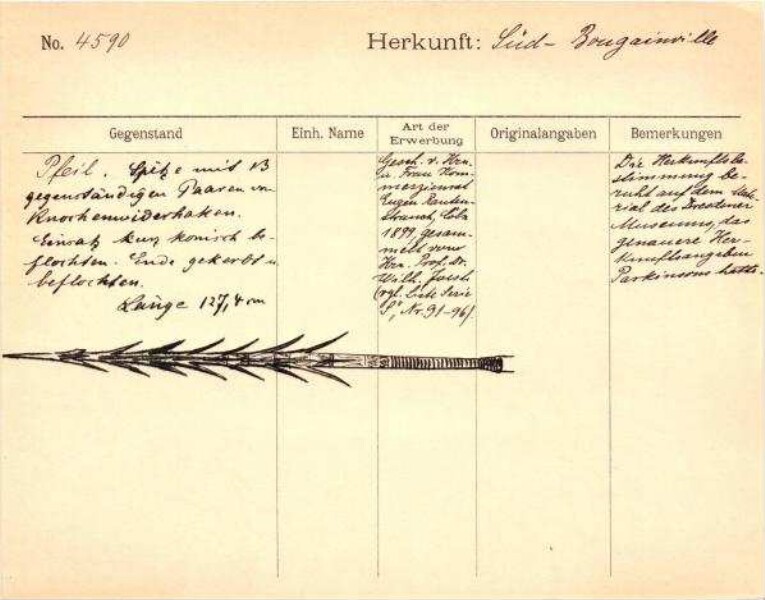 No. 4590
Herkunft: Süd-Bougainville
Gegenstand
Einh. Name
Art der Erwerbung
Originalangaben
Bemerkungen
Pfeil. Spitze mit 13
gegenständigen Paaren von
Knochenwiderhaken.
Einsatz kurz konisch be-
flochten. Ende gekerbt u.
beflochten.
Länge 127,4 cm
Gesch. v. Hrn.
u. Frau Kom-
merzienrat
Eugen Rauten-
strauch, Cöln
1899, gesam-
melt von
Hrn. Prof. Dr.
Wilh. Joest
(vgl. Liste Serie
S, Nr. 91-96).
Die Herkunftsbe-
stimmung be-
ruht auf dem Mate-
rial des Dresdener
Museums, das
genauere Her-
kunftsangaben
Parkinsons hatte.